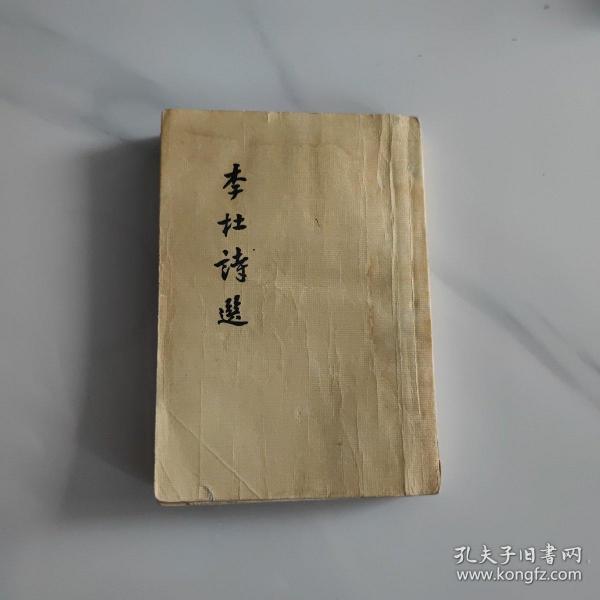 李杜詩選
孔夫子旧書网
www.kongfz.com